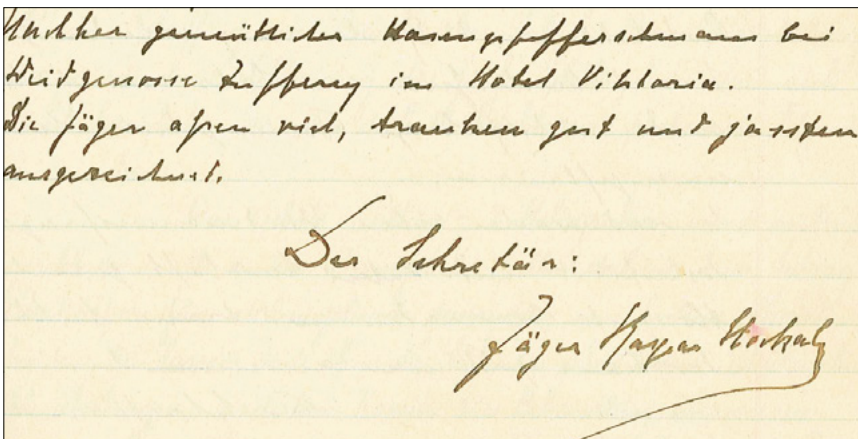 Nachher gemütlicher Hasenpfefferschmaus bei
Weidgenosse Zufferey im Hotel Viktoria.
Die Jäger assen viel, tranken gut und jassten
ausgezeichnet.
Der Sekretär:
Jäger Kaspar Stockalper